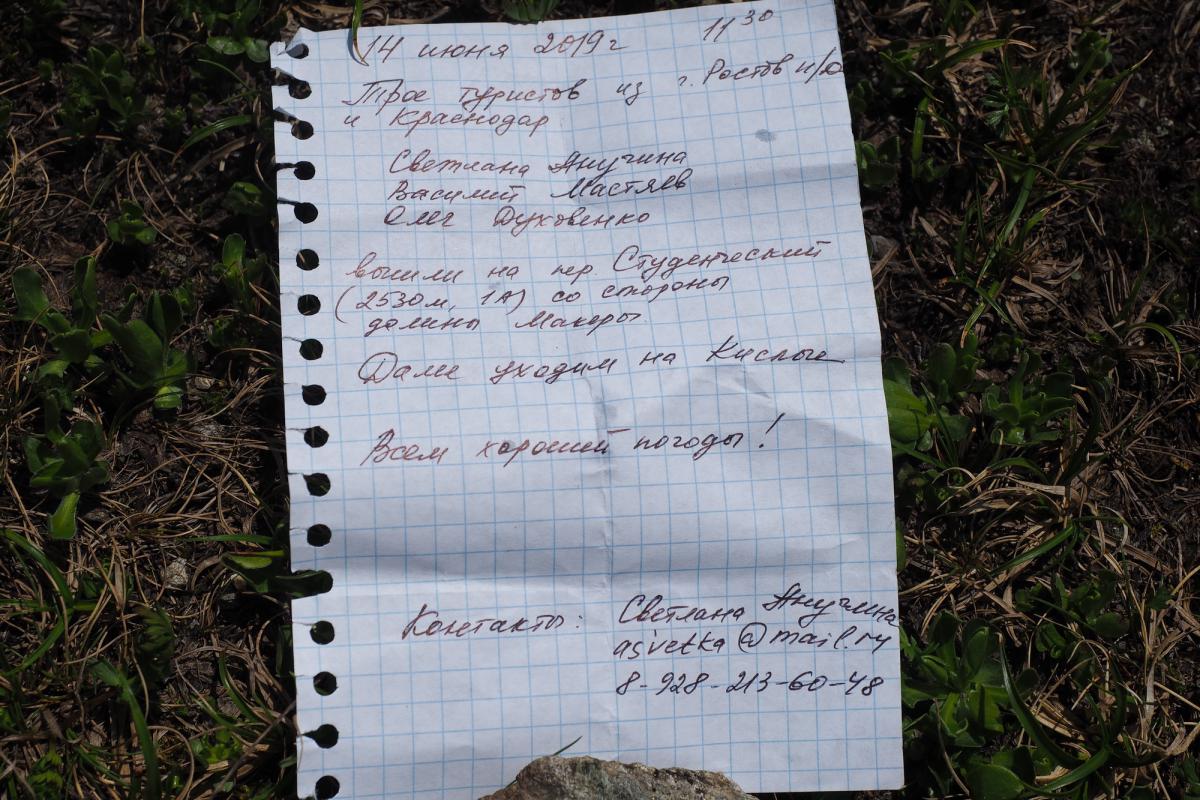 14 июня 2019г 11 30
Трое туристов из г. Ростов н/Д
и Краснодар
Светлана Анучина
Василий Мастяев
Олег Духовенко
вышли на пер. Студенческий
(2530м, 1А) со стороны
долины Макеры.
Далее уходим на Кислые
Всем хорошей погоды!
Контакты: Светлана Анучина
asvetka@mail.ru
8-928-213-60-48